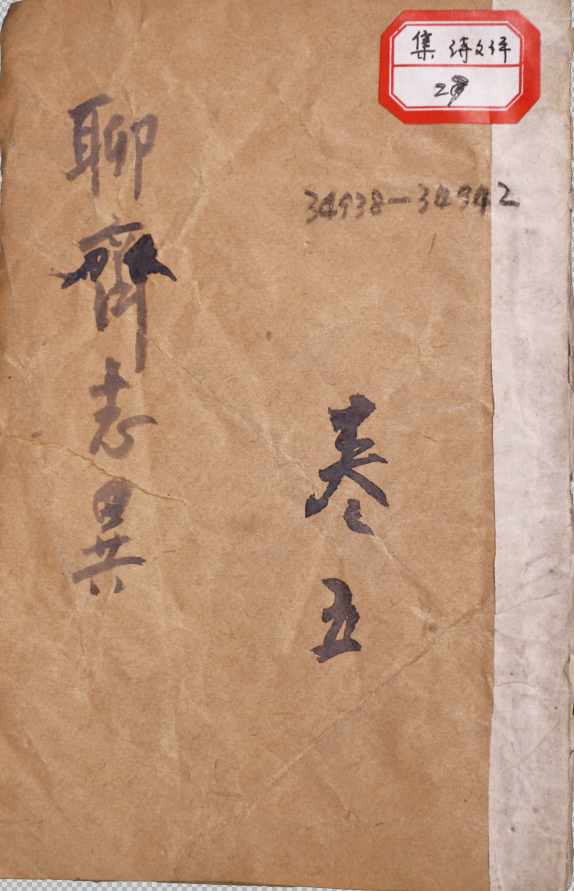 集 诗文评
34938-34942
卷五
聊齋志異